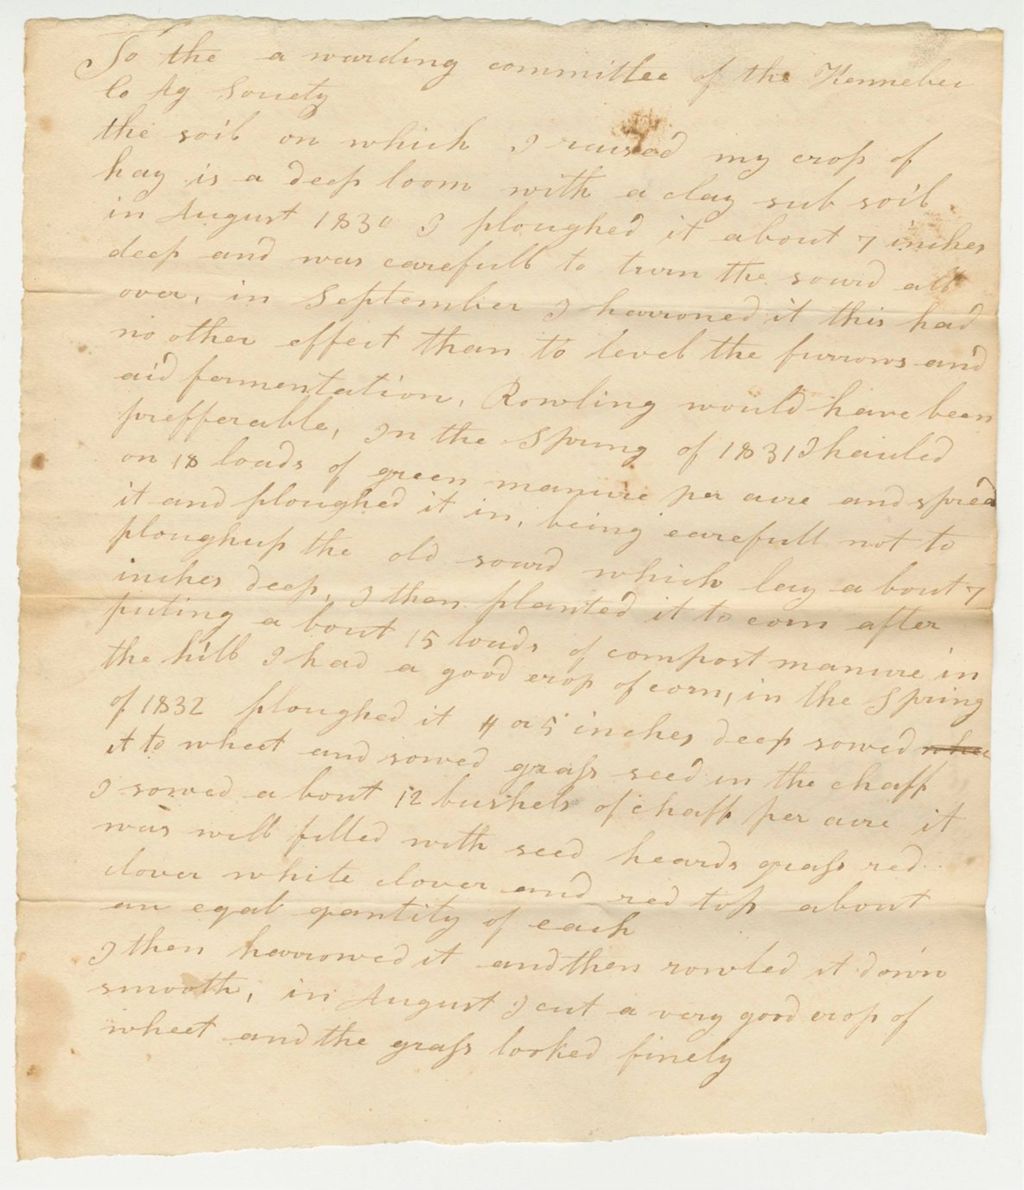 To the a warding committee of the Kennebec
Co Ag Society
the soil on which I raised my crop of
hay is a deep loom with a clay sub soil
in August 1830 I ploughed it about 7 inches
deep and was carefull to turn the sward all
over, in September I harrowed it this had
no other effect than to level the furrows and
aid fermentation, Rowling would have been
prefferable, In the Spring of 1831 I hauled
on 18 loads of green manure per acre and spread
it and ploughed it in, being carefull not to
plough up the old sward which lay about 7
inches deep, I then planted it to corn after
puting a bout 15 loads of compost manure in
the hill I had a good crop of corn, in the Spring
of 1832 ploughed it 4 or 5 inches deep sowed
it to wheet and sowed grass seed in the chaff
I sowed a bout 12 bushels of chaff per acre it
was well filled with seed heards grass red
clover white clover and red top about
an eqal qantity of each
I then harrowed it and then rowled it down
smooth, in August I cut a very good crop of
wheet and the grass looked finely